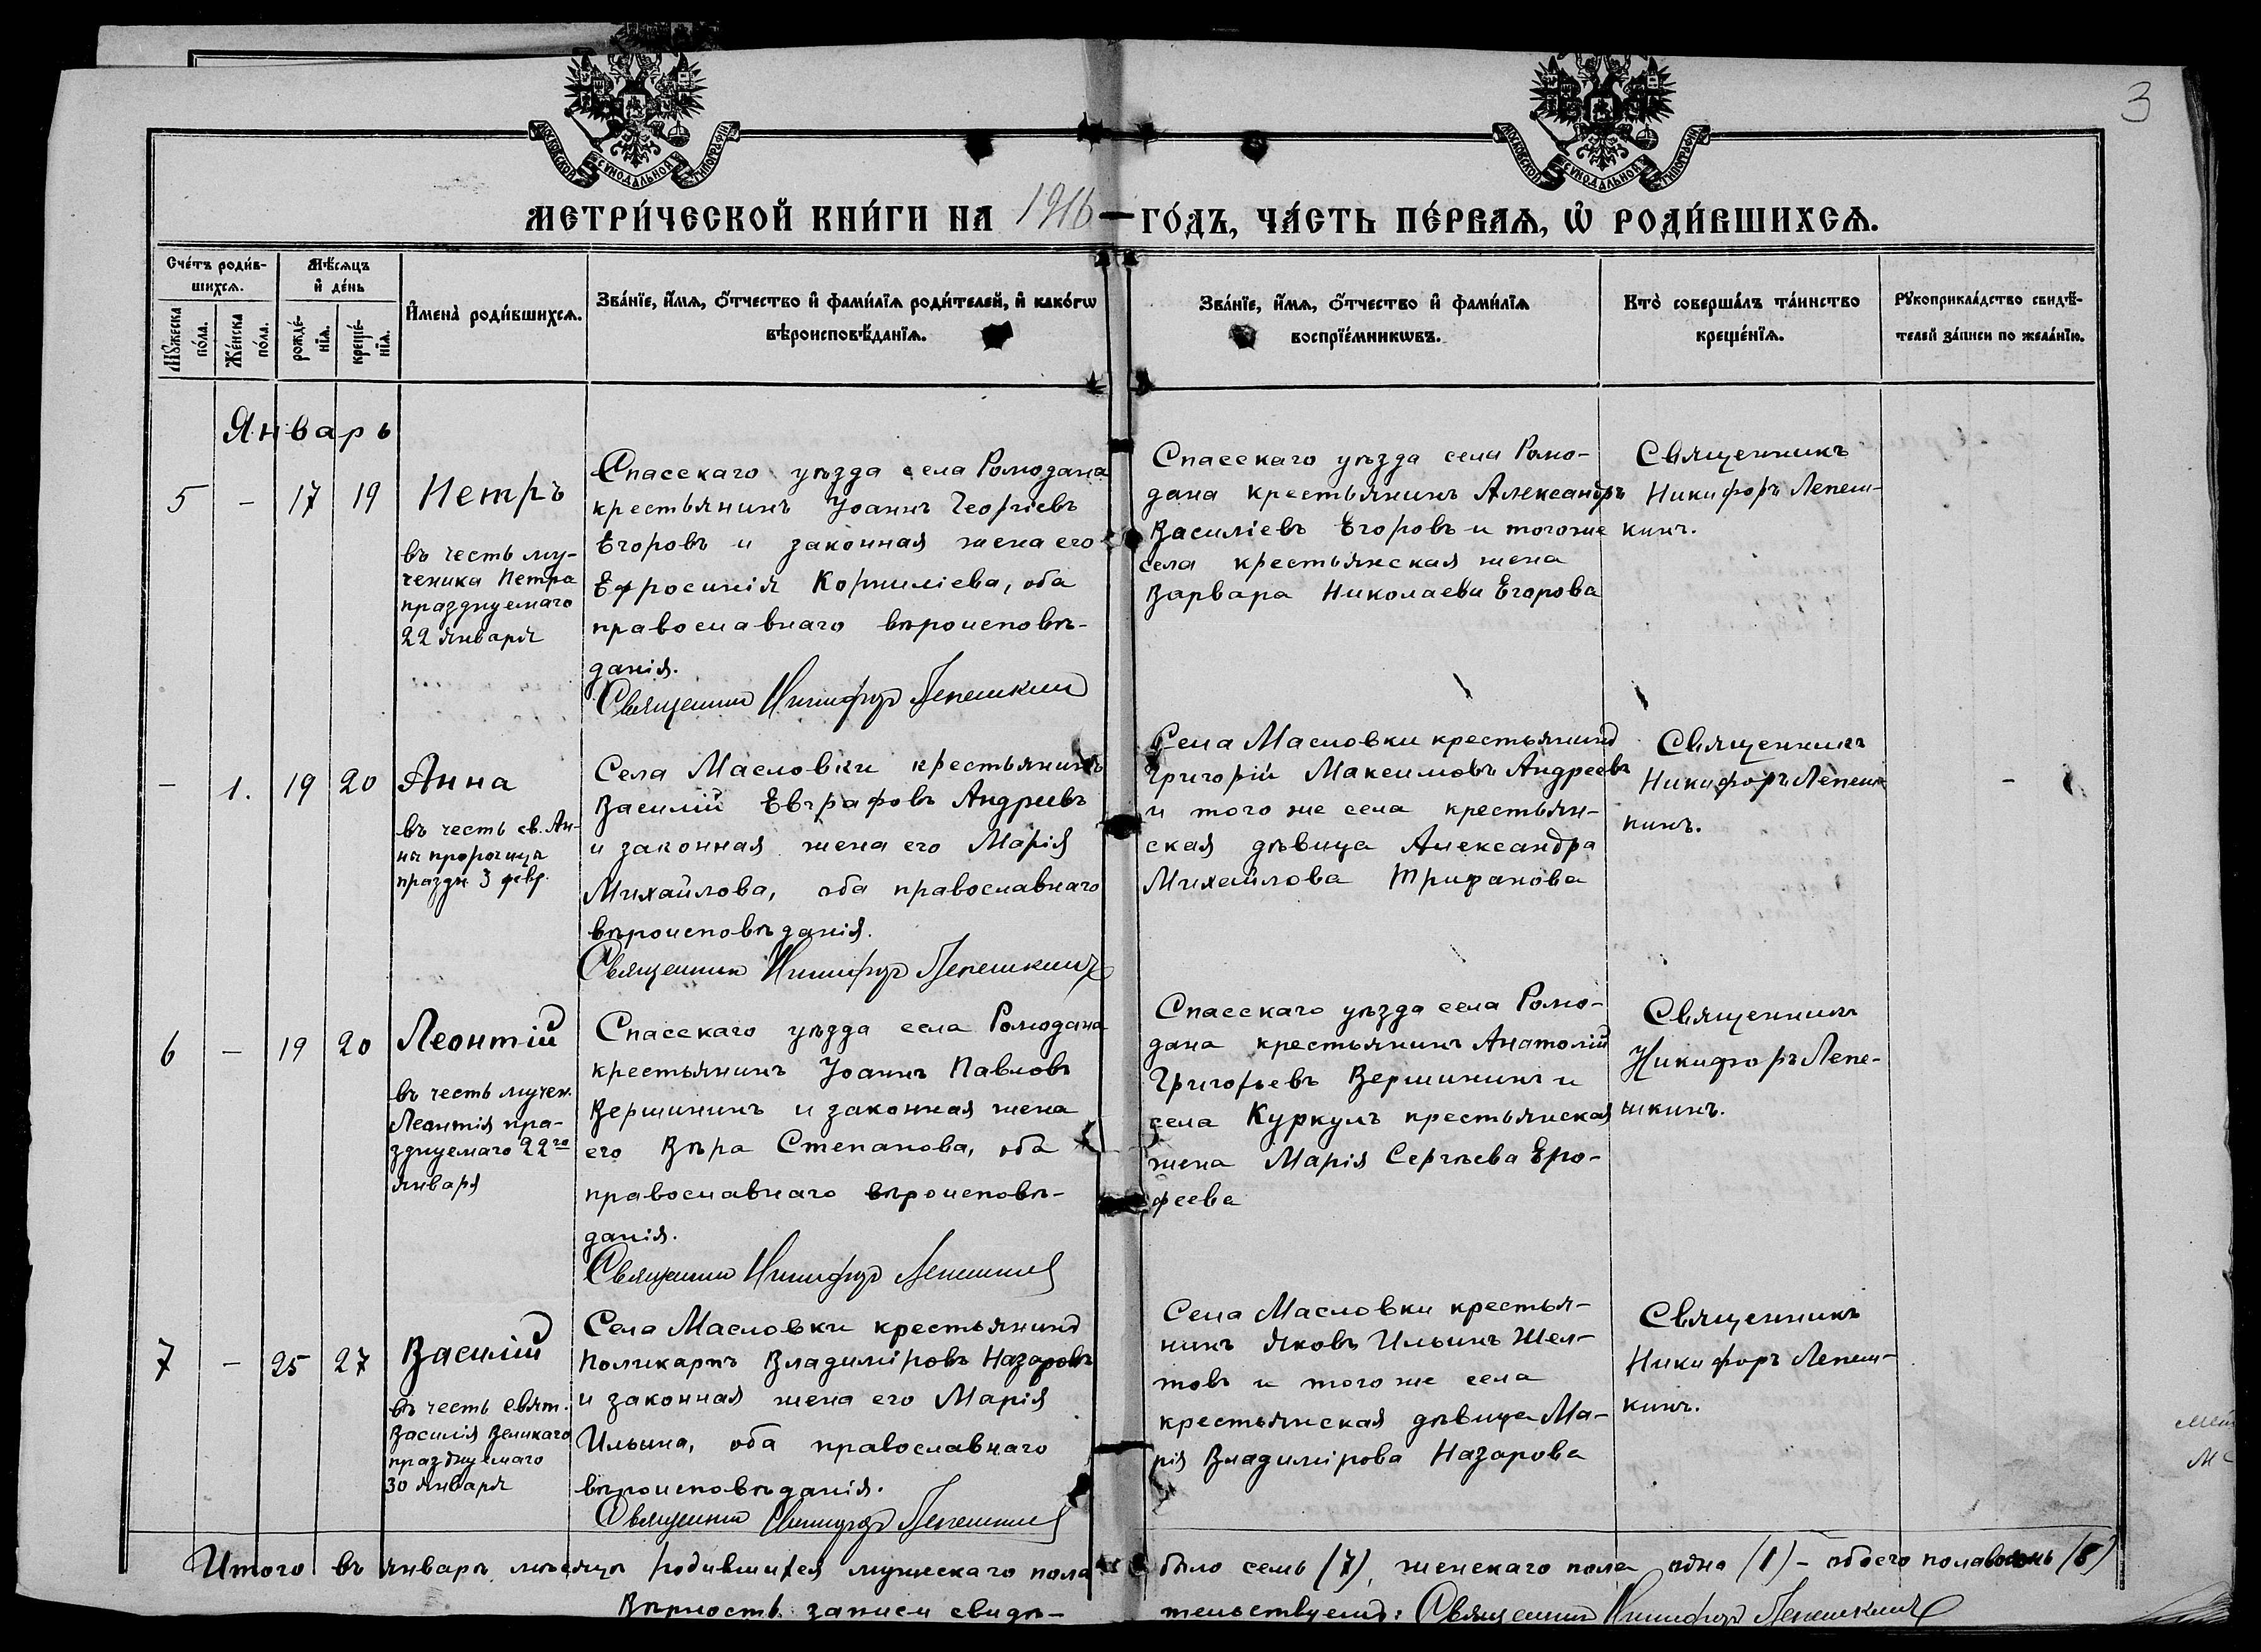 3
МОСКОВСКОЙ СѴНОДАЛЬНОЙ ТИПОГРАФІИ
МОСКОВСКОЙ СѴНОДАЛЬНОЙ ТИПОГРАФІИ
МЕТРИ́ЧЕСКОЙ КНИ́ГИ НА 1916 ГО́ДЪ, ЧА́СТЬ ПЕ́РВАѦ, Ѡ҆ РОДИ́ВШИХСѦ.
Сче́тъ роди́в-
шихсѧ.
Мѣ́сѧцъ
и҆ де́нь
Мꙋ́жеска
по́ла.
Же́нска
по́ла.
рожде́-
нїѧ.
креще́-
нїѧ.
И҆мена̀ роди́вшихсѧ.
Зва́нїе, и҆́мѧ, ѻ҆́тчество и҆ фами́лїѧ роди́телей, и҆ како́гѡ
вѣроисповѣ́данїѧ.
Зва́нїе, и҆́мѧ, ѻ҆́тчество и҆ фами́лїѧ
воспрїе́мникѡвъ.
Кто̀ соверша́лъ та́инство
креще́нїѧ.
Рꙋкоприкла́дство свидѣ́-
телей за́писи по жела́нїю.
Январь
5 - 17 19
Петръ
въ честь му-
ченика Петра
празднуемаго
22 января
Спасскаго уѣзда села Ромодана
крестьянинъ Іоаннъ Георгіевъ
Егоровъ и законная жена его
Ефросинія Корниліева, оба
православнаго вѣроисповѣ-
данія.
Священникъ Никифоръ Лепешкинъ
Спасскаго уѣзда села Ромо-
дана крестьянинъ Александръ
Василіевъ Егоровъ и тогоже
села крестьянская жена
Варвара Николаева Егорова
Священникъ
Никифоръ Лепеш-
кинъ.
- 1. 19 20
Анна
въ честь св. Ан-
ны пророчицы
праздн. 3 февр.
Села Масловки крестьянинъ
Василій Евграфовъ Андреевъ
и законная жена его Марія
Михайлова, оба православнаго
вѣроисповѣданія.
Священникъ Никифоръ Лепешкинъ
Села Масловки крестьянинъ
Григорій Максимовъ Андреевъ
и того же села крестьян-
ская дѣвица Александра
Михайлова Трифанова
Священникъ
Никифоръ Лепеш
кинъ.
-
6 - 19 20
Леонтій
въ честь мучен.
Леонтія пра-
зднуемаго 22го
января
Спасскаго уѣзда села Ромодана
крестьянинъ Іоаннъ Павловъ
Вершининъ и законная жена
его Вѣра Степанова, оба
православнаго вѣроисповѣ-
данія.
Священникъ Никифоръ Лепешкинъ
Спасскаго уѣзда села Ромо-
дана крестьянинъ Анатолій
Григорьевъ Вершининъ и
села Куркулъ крестьянская
жена Марія Сергѣева Еро-
феева
Священникъ
Никифоръ Лепе-
шкинъ.
7 - 25 27
Василій
въ честь свят.
Василія Великаго
празднуемаго
30 января
Села Масловки крестьянинъ
Поликарпъ Владиміровъ Назаровъ
и законная жена его Марія
Ильина, оба православнаго
вѣроисповѣданія.
Священникъ Никифоръ Лепешкинъ
Села Масловки крестья-
нинъ Яковъ Ильинъ Жел-
товъ и того же села
крестьянская дѣвица Ма-
рія Владимірова Назарова
Священникъ
Никифоръ Лепеш-
кинъ.
Итого въ январѣ мѣсяцѣ родившихся мужескаго пола было семь (7), женскаго пола одна (1) - обоего пола восемь (8)
Вѣрность записи свидѣ-тельствуетъ: Священникъ Никифоръ Лепешкинъ